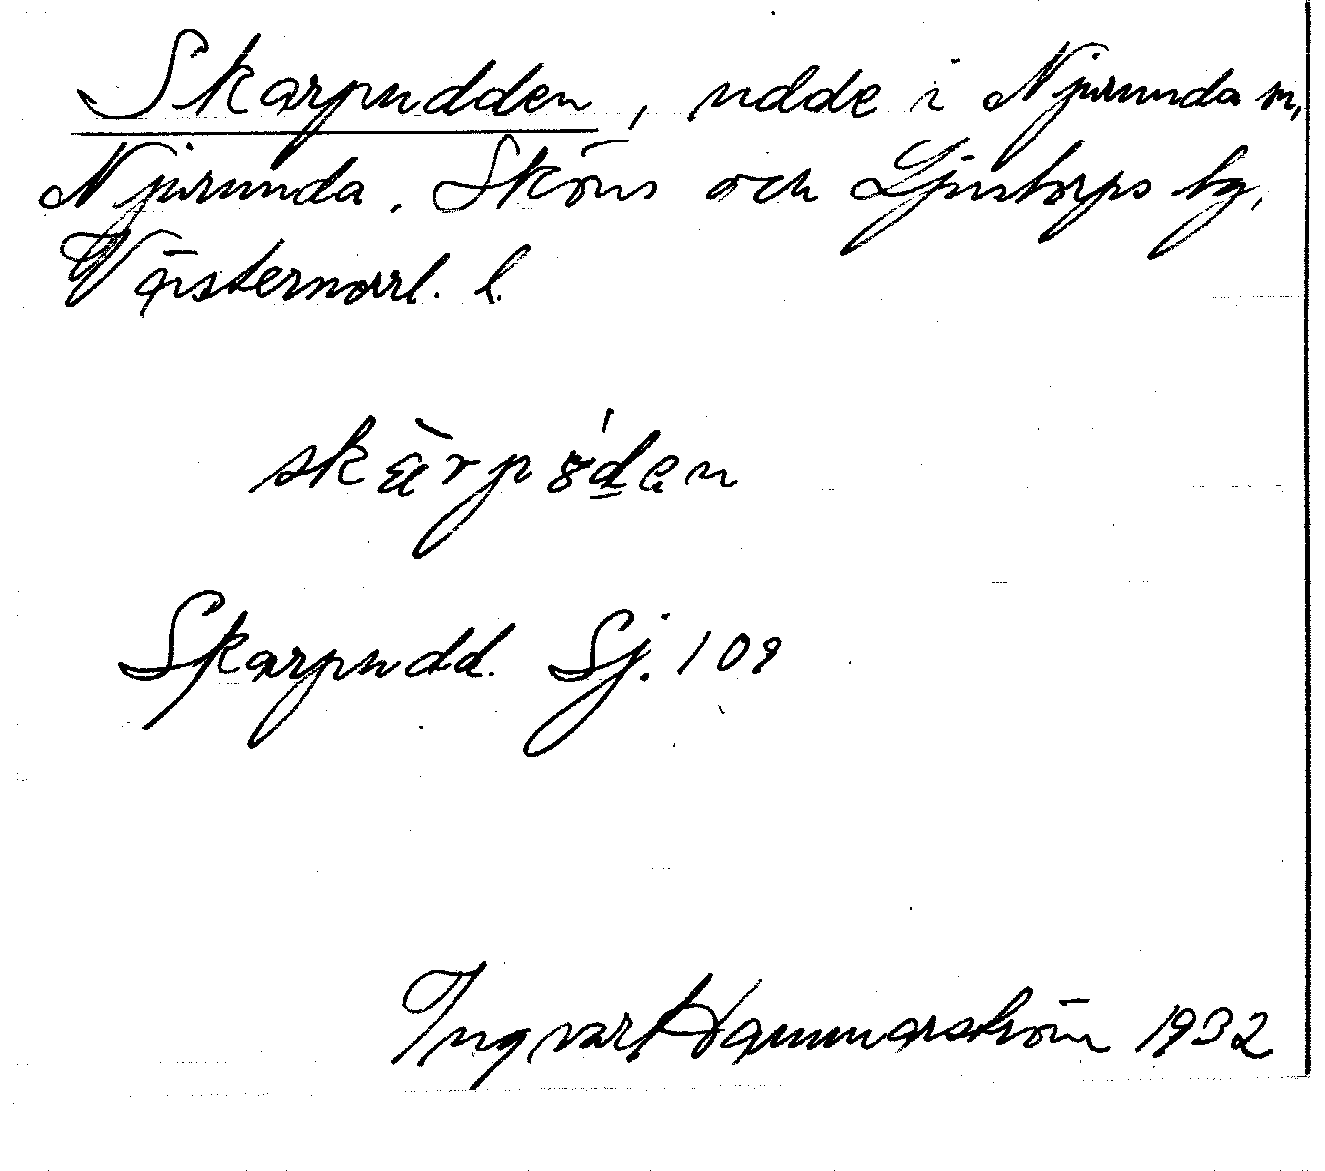 Skarpudden, udde i Njurunda sn,
Njurunda, Sköns och Ljustorps tg,
Västernorrl. l.
skàrpȣ́d̲en
Skarpudd. Sj. 109
Ingvar Hammarström 1932